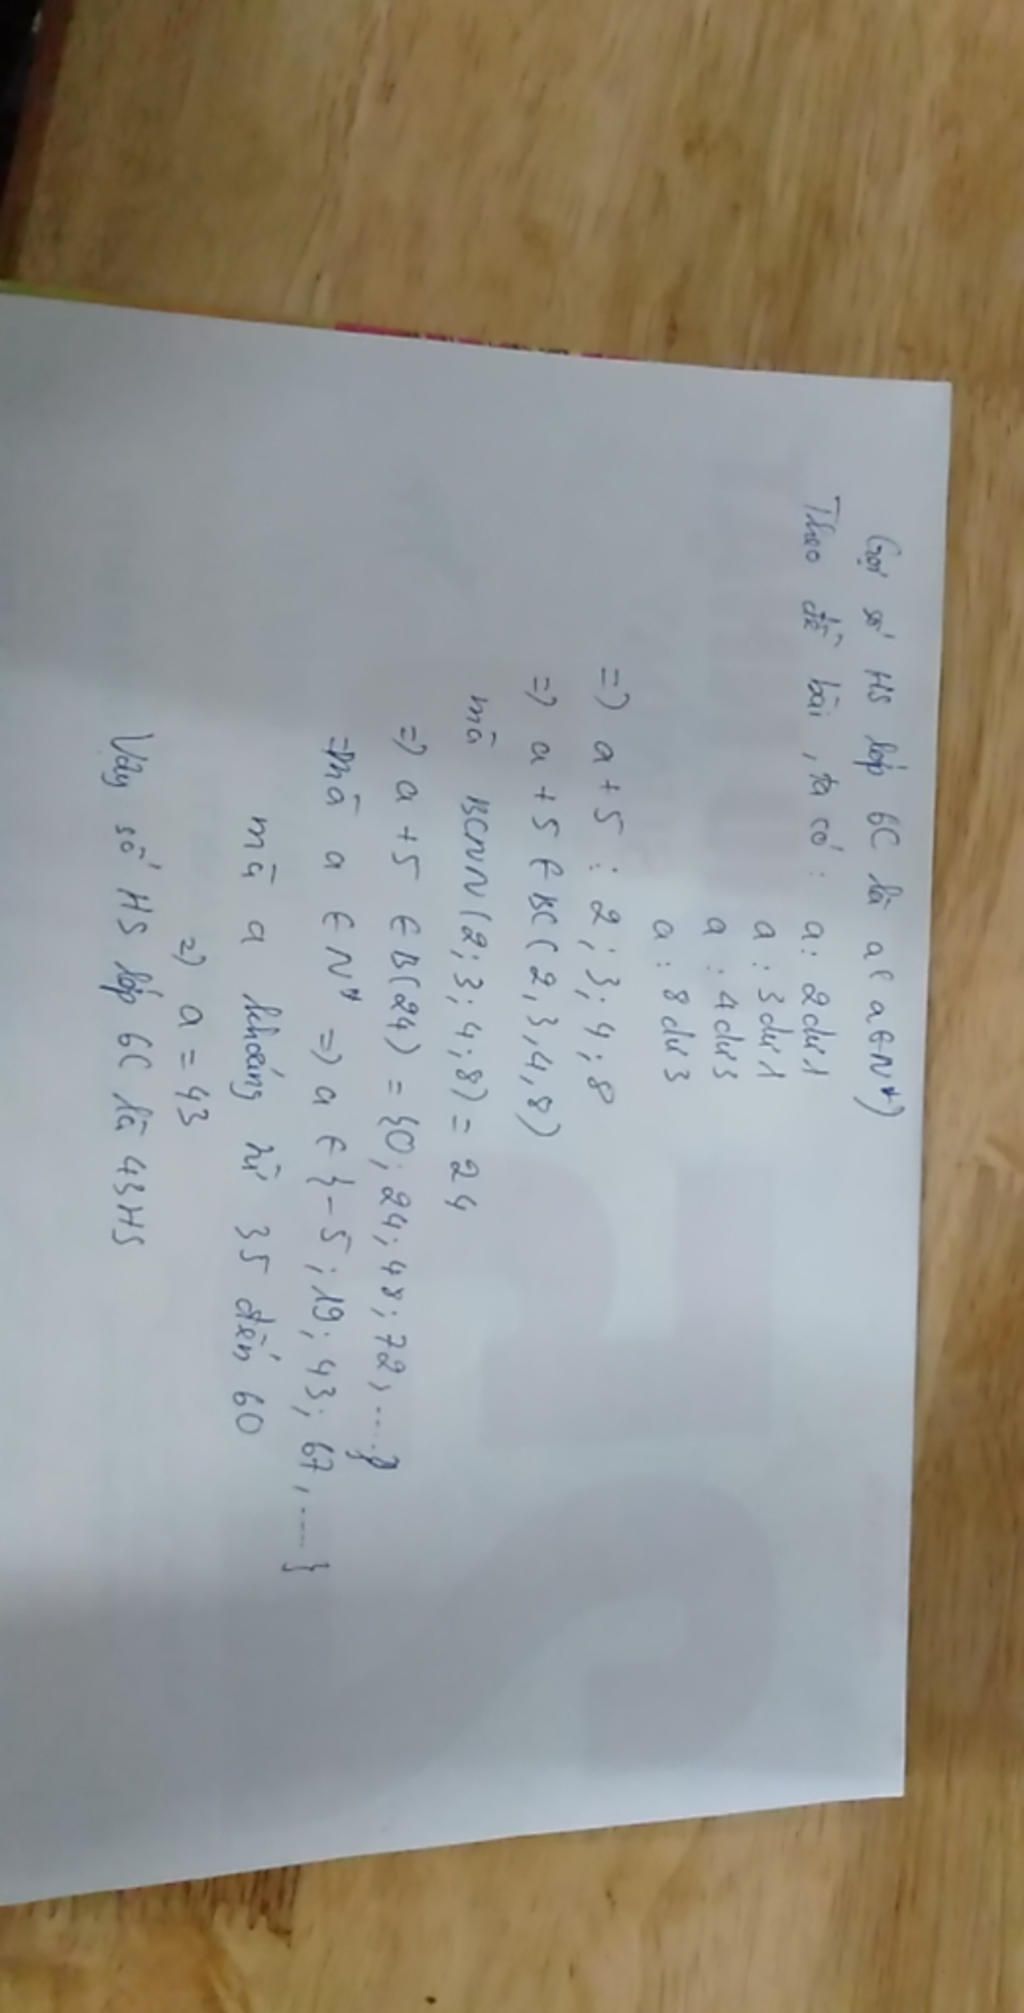 Gọi số HS lớp 6C là a( a∈N*)
Theo đề bài, ta có: a: 2 dư 1
a : 3 dư 1
a : 4 dư 3
a : 8 dư 3
=) a + 5 : 2 ; 3 ; 4 ; 8
=) a + 5 ∈ BC( 2, 3, 4, 8)
mà BCNN(2; 3; 4; 8) = 24
=) a + 5 ∈ B(24) = {0; 24; 48; 72, ....}
mà a ∈ N* =) a ∈ {-5; 19; 43; 67, ....}
mà a khoảng từ 35 đến 60
=) a = 43
Vậy số HS lớp 6C là 43HS